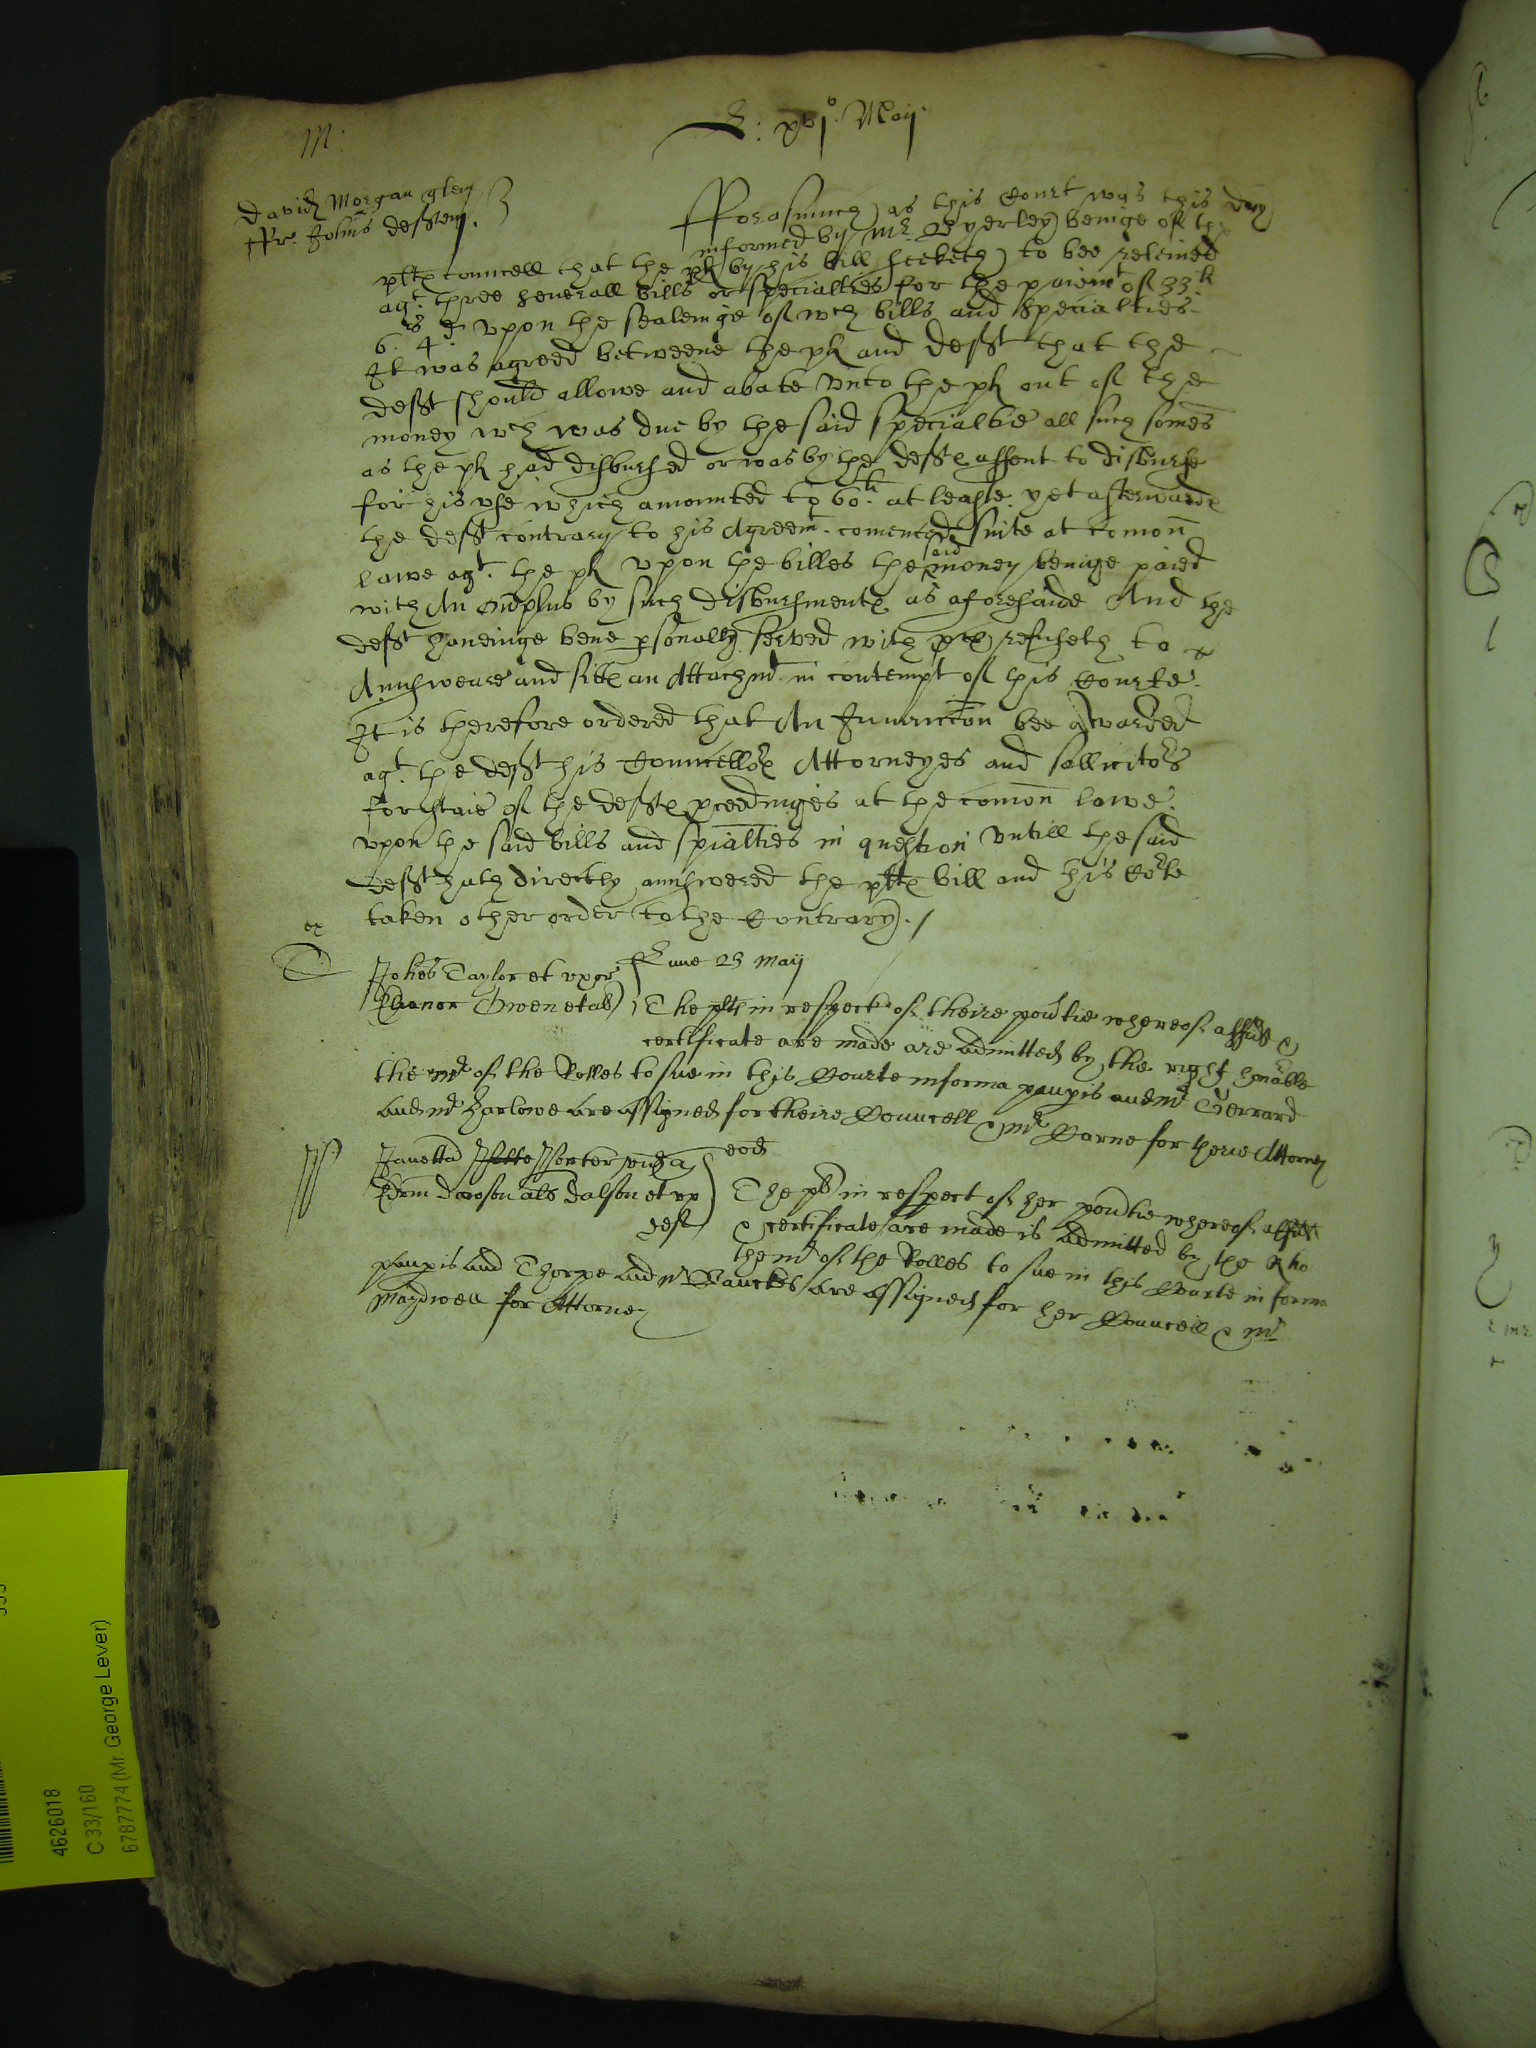 M:
xvjo Maij
David Morgan quer
ffr: Johns defftem.
Fforasmuch as this Court was this day
informed by Mr. Byerley beinge of the
pltes councell that the pl by his bill seeketh to bee releived
agt. three severall bills or specialties for the paiemt of 33li
6s 4d: vpon the sealeinge of wch bills and Specialties
It was agreed betweene the pl and defft that the
defft should allowe and abate vnto the pl out of the
money wch was due by the said specialtie all such somes
as the pl had disbursed or was by the deffte assent to disburse
for his vse which amounted to 60li. at leaste. yet afterwardes
the defft contrary to his Agreemt. comenced suite at comon
lawe agt. the pl vpon the billes the said money beinge paied
with An ouerplus by such disbursmentes as aforesaide And the
defft haueinge bene personally served with proces refuseth to
Annsweare and sittes an Attachmt in contempt of this Courte.
It is therefore ordered that An Iniunccon bee awarded
agt. the defft his Councellors Attorneyes and sollicitors
for staie of the deffte proceedinges at the comon lawe
vpon the said bills and spialties in question vntill the said
defft hath directly annswered the pltes bill and this Corte
taken other order to the Contrary./
ex
Johes Taylor et vxor
Elianor Owen et als
Lune 23 Maij
The plts in respect of theire poutie whereof affidt &
certificate are made are admitted by the right honable
the Mr of the Rolles to sue in this Courte in forma paupis and Mr Gerrard
and mr Harlowe are assigned for theire Councell & Mr Dorne for theire Attorney
Janetta Porter vid q
Edm dawson als dalson et vx
deft
eod
The pl in respect of her poutie whereof affidt
& certificate are made is admitted by the R ho
the mr of the Rolles to sue in this Courte in forma
paupis and Thorpe and mr Banckes are assigned for her Councell & Mr
Maydwell for Attorney
4626018
C 33/160
6787774 (Mr. George Lever)